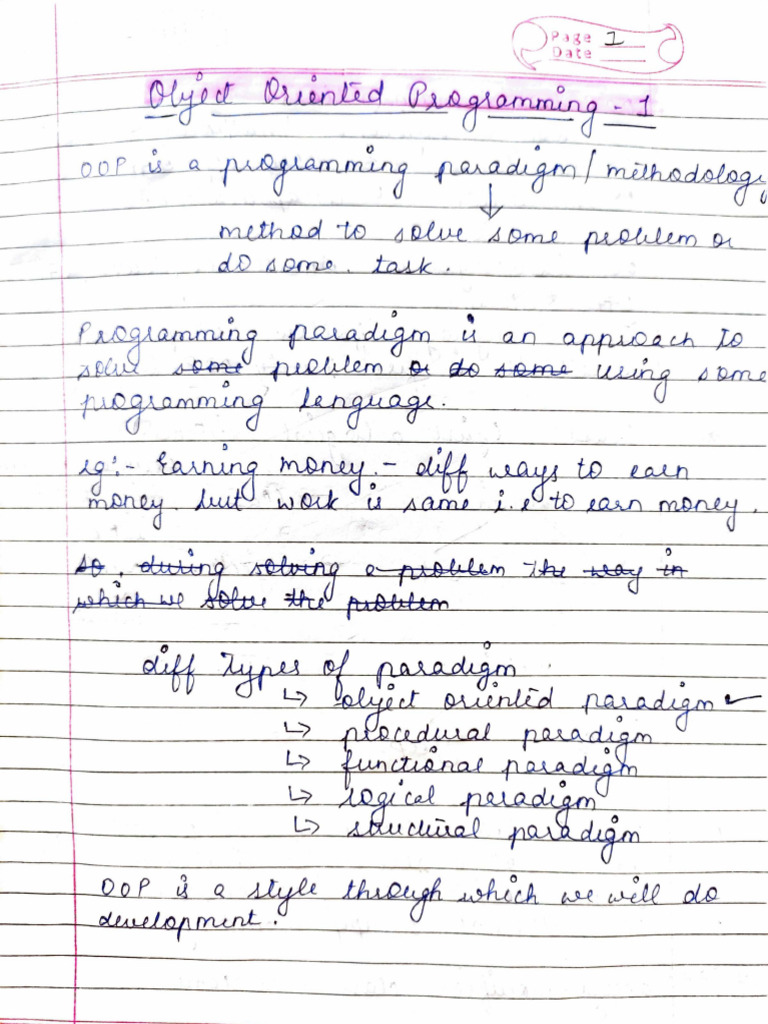 Page 1
Date
Object Oriented Programming - 1
OOP is a programming paradigm / methodology
↓
method to solve some problem or
do some task.
Programming paradigm is an approach to
solve some problem or do some using some
programming language.
eg:- Earning money. - diff ways to earn
money but work is same i.e to earn money.
so, during solving a problem the way in
which we solve the problem
diff Types of paradigm
↳ object oriented paradigm ✓
↳ procedural paradigm
↳ functional paradigm
↳ logical paradigm
↳ structural paradigm
OOP is a style through which we will do
development.